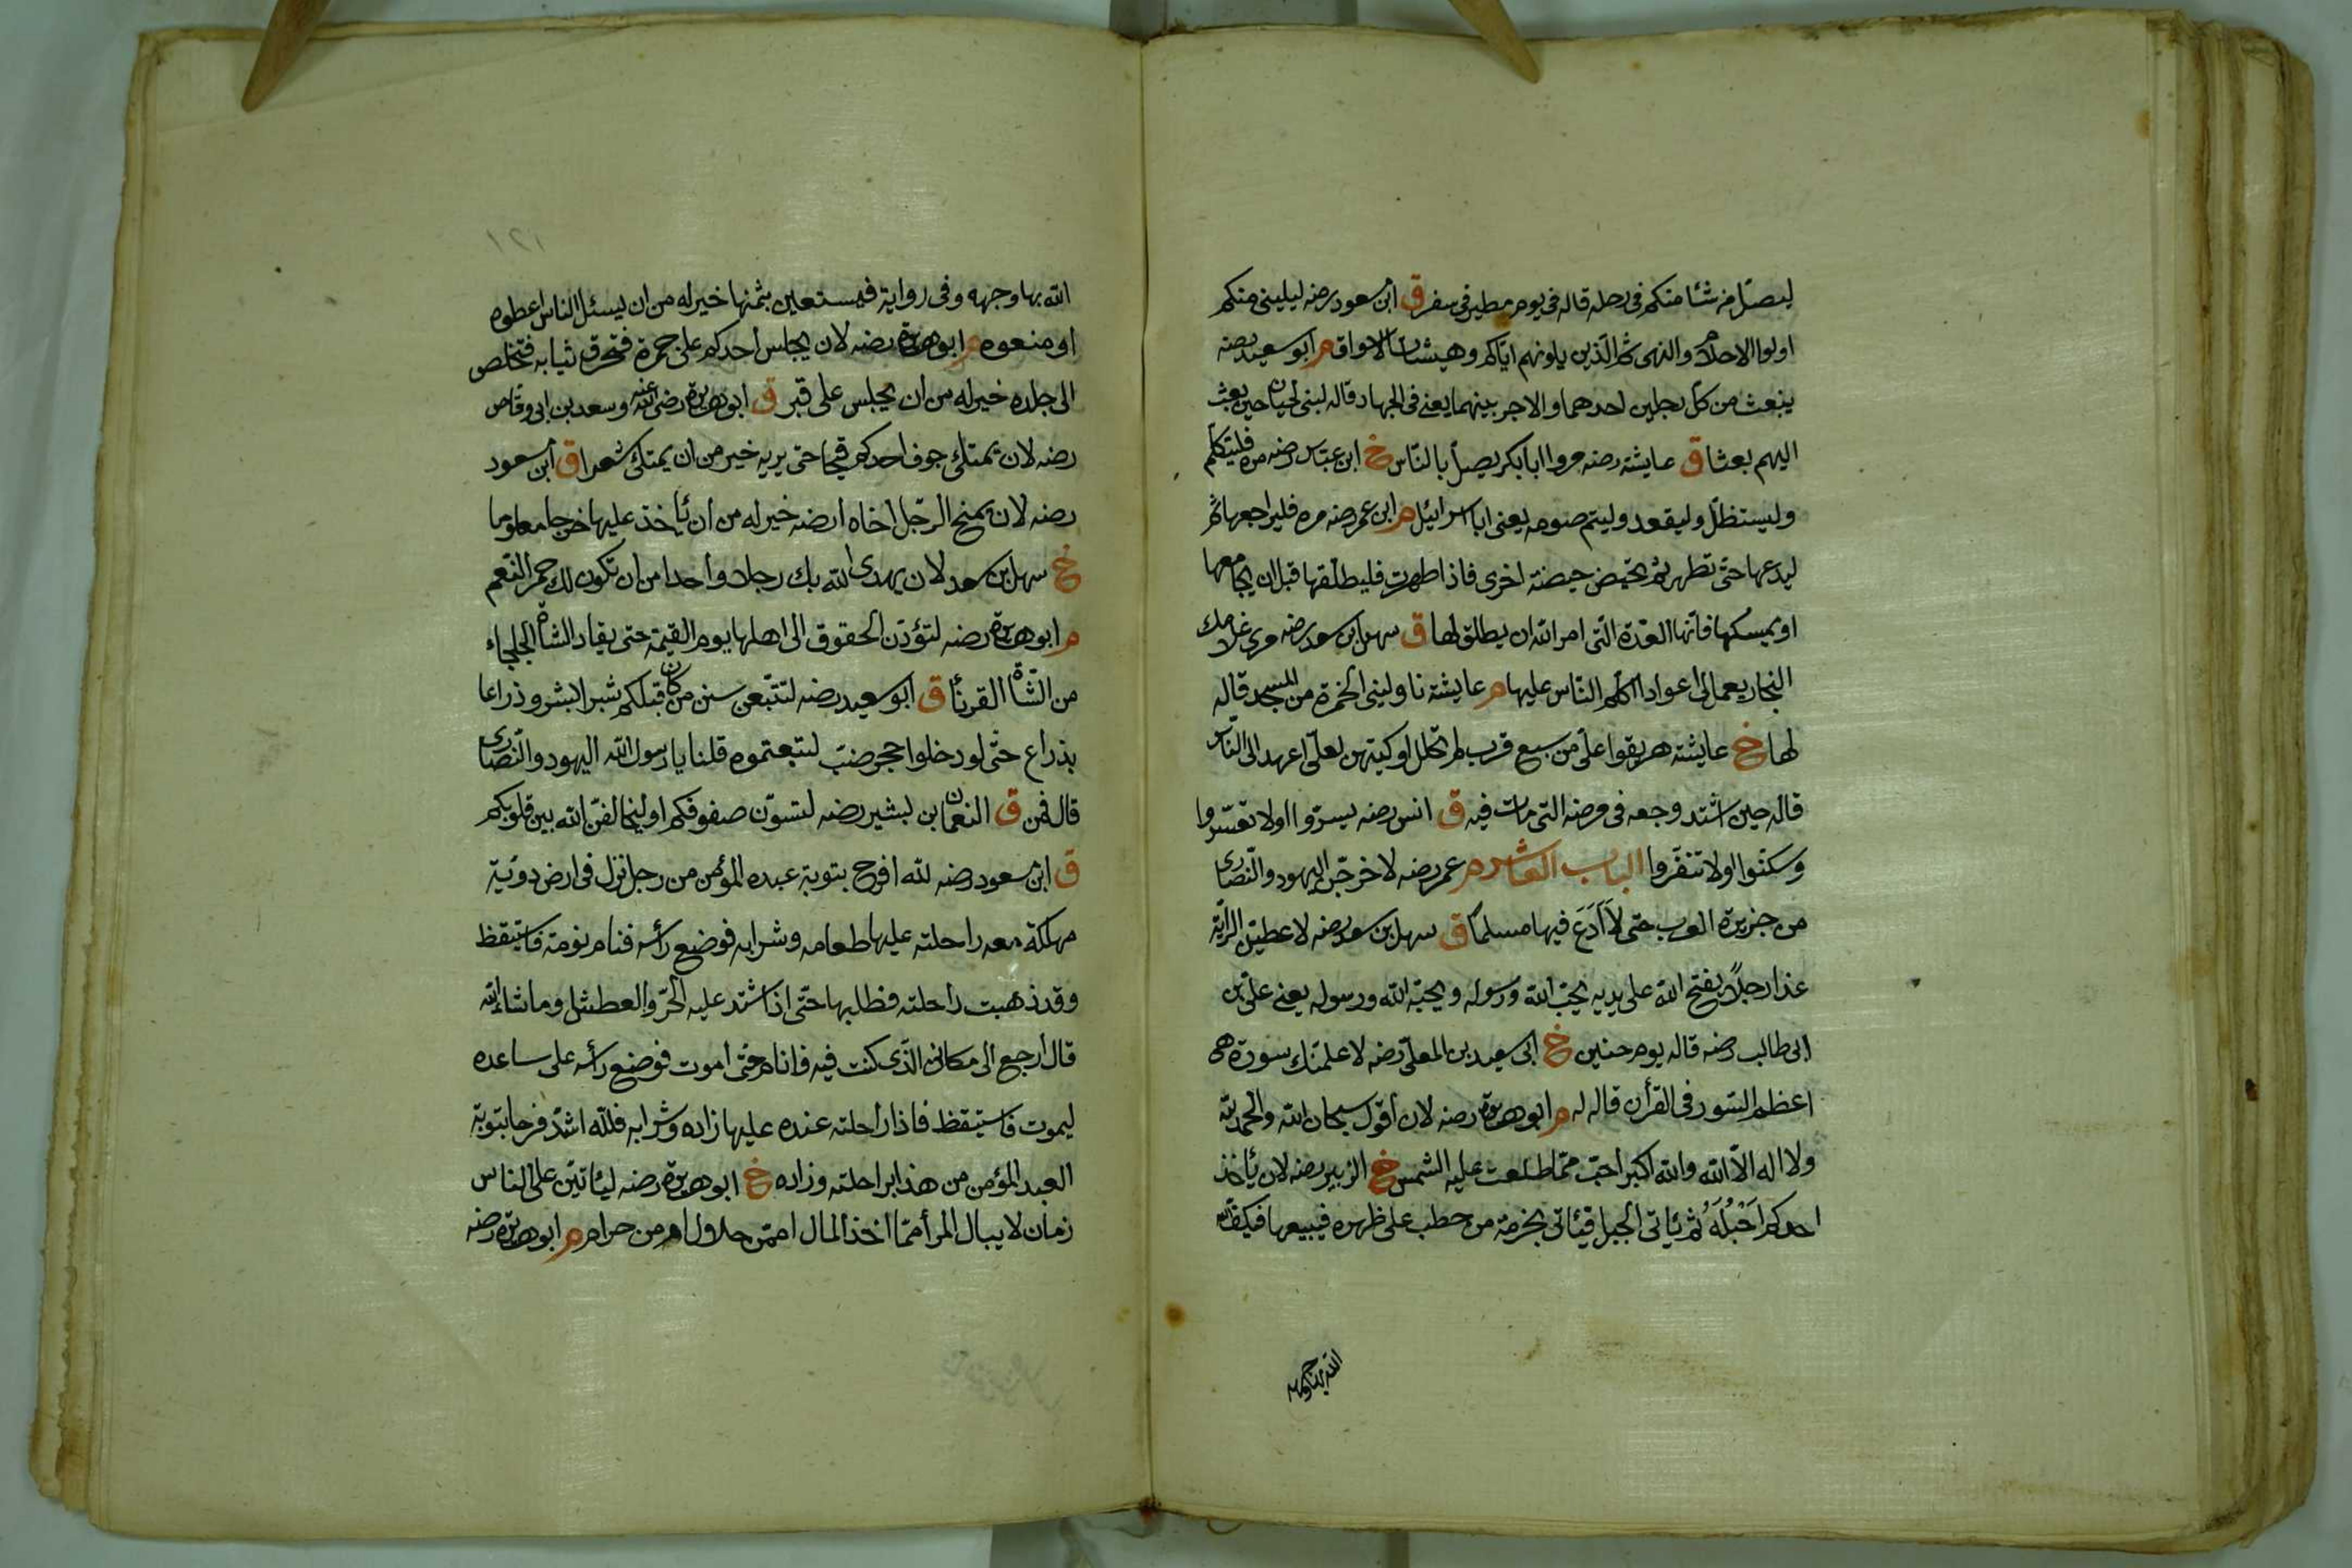 ليصل من شا منكم فى رحله قاله فى يوم مطير فى سفر ق ابن مسعود رضه ليلينى منكم
اولوا الاحلام والنهى ثم الذين يلونهم اياكم وهيشات الاسواق م ابو سعيد رضه
ينبعث من كل رجلين احدهما والاجر بينهما يعنى فى الجهاد قاله لبنى لحيان حين بعث
اليهم بعثا ق عايشة رضه مروا ابابكر يصل بالناس خ ابن عباس رضه مره فليتكلم
وليستظل وليقعد وليتم صومه يعنى ابا اسرائيل م ابن عمر رضه مره فليراجعها ثم
ليدعها حتى تطهر ثم تحيض حيضة اخرى فاذا طهرت فليطلقها قبل ان يجامعها
او يمسكها فانها العدة التى امر الله ان يطلق لها ق سهل بن سعد رضه مرى غلامك
النجار يعمل لى اعوادا اكلم الناس عليها م عايشة ناولينى الخمرة من المسجد قاله
لها خ عايشة هريقوا على من سبع قرب لم تحلل اوكيتهن لعلى اعهد الى الناس
قاله حين اشتد وجعه فى مرضه التى مات فيه ق انس رضه يسروا ولا تعسروا
وسكنوا ولا تنفروا الباب العاشر م عمر رضه لاخرجن اليهود والنصارى
من جزيرة العرب حتى لا اَدَعَ فيها مسلما ق سهل بن سعد رضه لاعطين الراية
غدا رجلاً يفتح الله على يديه يحب الله ورسوله ويحبه الله ورسوله يعنى على بن
ابى طالب رضه قاله يوم حنين خ ابى سعيد بن المعلى رضه لاعلمنك سورة هى
اعظم السور فى القرأن قاله له م ابو هريرة رضه لان أقول سبحان الله والحمد لله
ولا اله الا الله والله اكبر احب مما طلعت عليه الشمس خ الزبير رضه لان يأخذ
احدكم اَحْبُلَهُ ثم يأتى الجبل فيأتى بحزمة من حطب على ظهره فيبيعها فيكف الله
١٢١
الله بها وجهه وفى رواية فيستعين بثمنها خير له من ان يسئل الناس اعطوه
او منعوه م ابو هريرة رضه لان يجلس أحدكم على جمرة فتحرق ثيابه فتخلص
الى جلده خير له من ان يجلس على قبر ق ابو هريرة رضى الله عنه وسعد بن ابى وقاص
رضه لان يمتلى جوف احدكم قيحا حتى يريه خير من ان يمتلى شعرا ق ابن مسعود
رضه لان يمنح الرجل اخاه أرضه خير له من أن يأخذ عليها خرجا معلوما
خ سهل بن سعد لان يهدى الله بك رجلا وأحدا من ان تكون لك حمر النعم
م ابو هريرة رضه لتؤدن الحقوق الى اهلها يوم القيمة حتى يقاد الشاة الجلجاء
من الشاة القرنأ ق ابو سعيد رضه لتتبعن سنن من كان قبلكم شبرا بشبر وذراعا
بذراع حتى لو دخلوا حجر ضب لتبعتموه قلنا يا رسول الله اليهود والنصارى
قال فمن ق النعمان بن بشير رضه لتسون صفوفكم او ليخالفن الله بين قلوبكم
ق ابن مسعود رضه لله افرح بتوبة عبده المؤمن من رجل نزل فى ارض دوية
مهلكة معه راحلته عليها طعامه وشرابه فوضع رأسه فنام نومة فاستيقظ
وقد ذهبت راحلته فطلبها حتى اذا اشتد عليه الحر والعطش او ما شاء الله
قال أرجع الى مكانى الذى كنت فيه فانام حتى اموت فوضع رأسه على ساعده
ليموت فاستيقظ فاذا راحلته عنده عليها زاده وشرابه فلله اشد فرحا بتوبة
العبد المؤمن من هذا براحلته وزاده خ ابو هريرة رضه ليأتين على الناس
زمان لا يبال المرأ مما اخذ المال امن حلال ام من حرام م ابو هريرة رضه